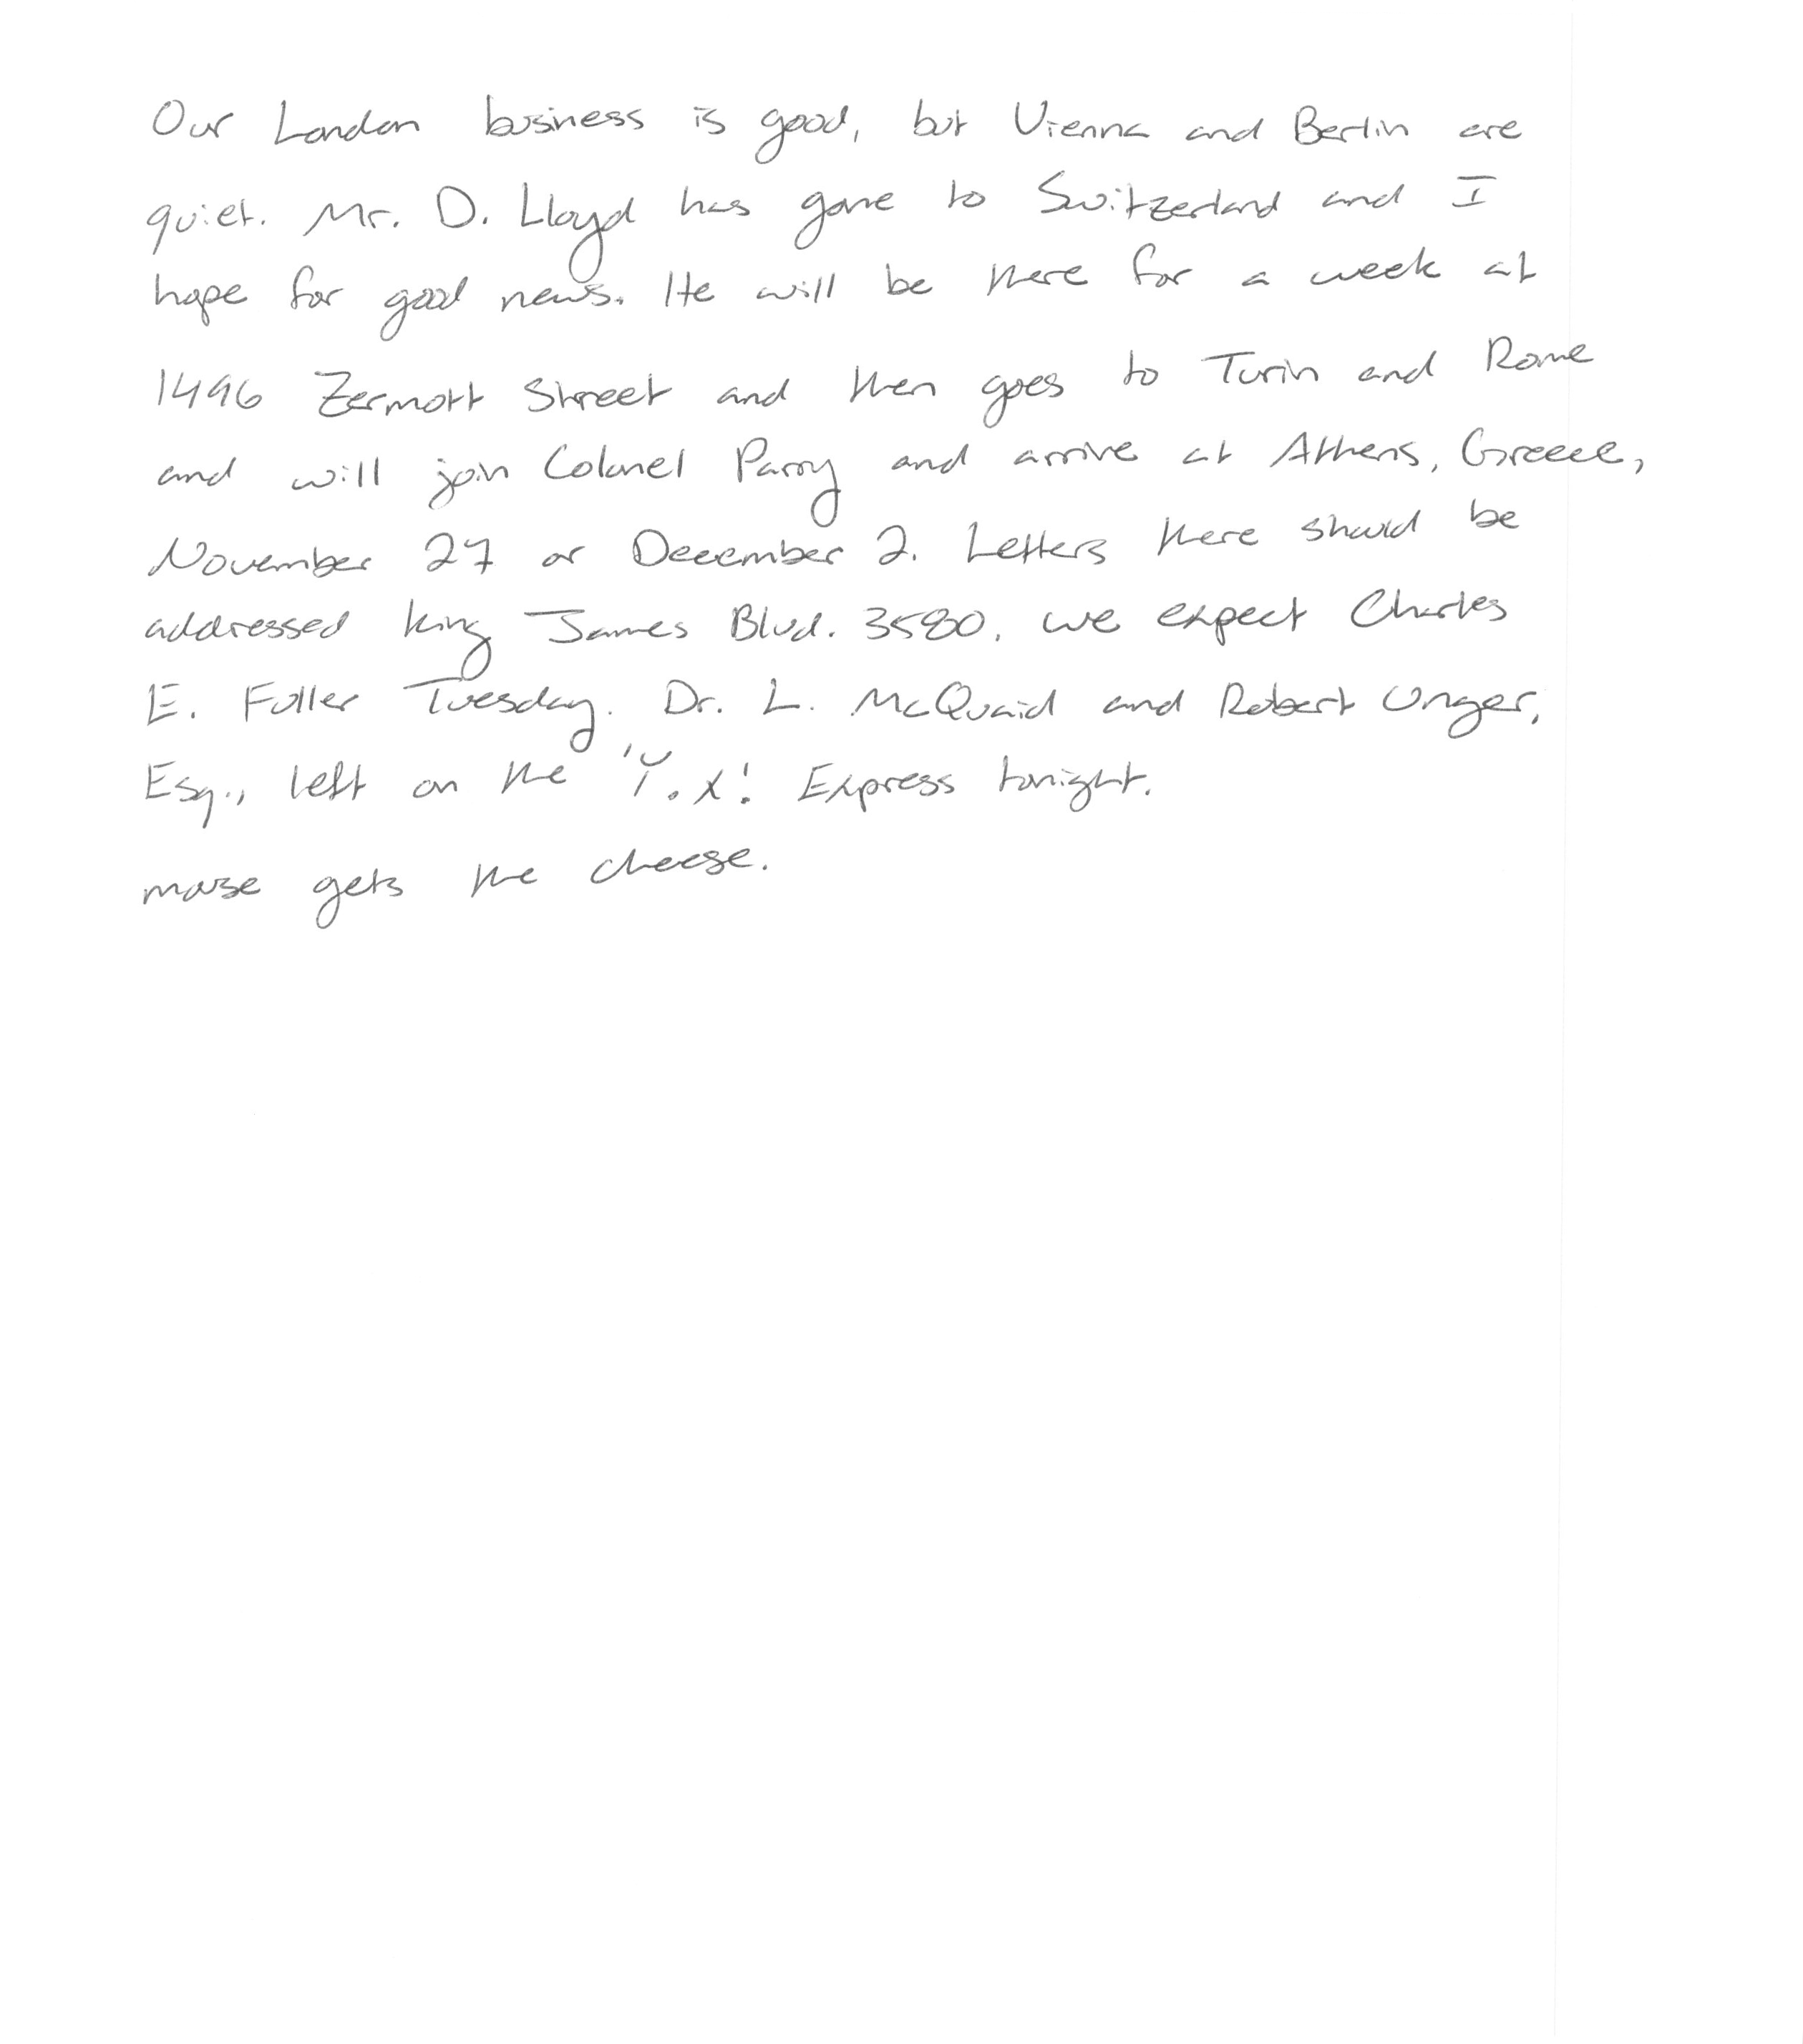 Our London business is good, but Vienna and Berlin are
quiet. Mr. D. Lloyd has gone to Switzerland and I
hope for good news. He will be there for a week at
1496 Zermott Street and then goes to Turin and Rome
and will join Colonel Parry and arrive at Athens, Greece,
November 27 or December 2. Letters there should be
addressed King James Blvd. 3580. We expect Charles
E. Fuller Tuesday. Dr. L. McQuaid and Robert Unger,
Esq., left on the 'Y.X.' Express tonight.
mouse gets the cheese.